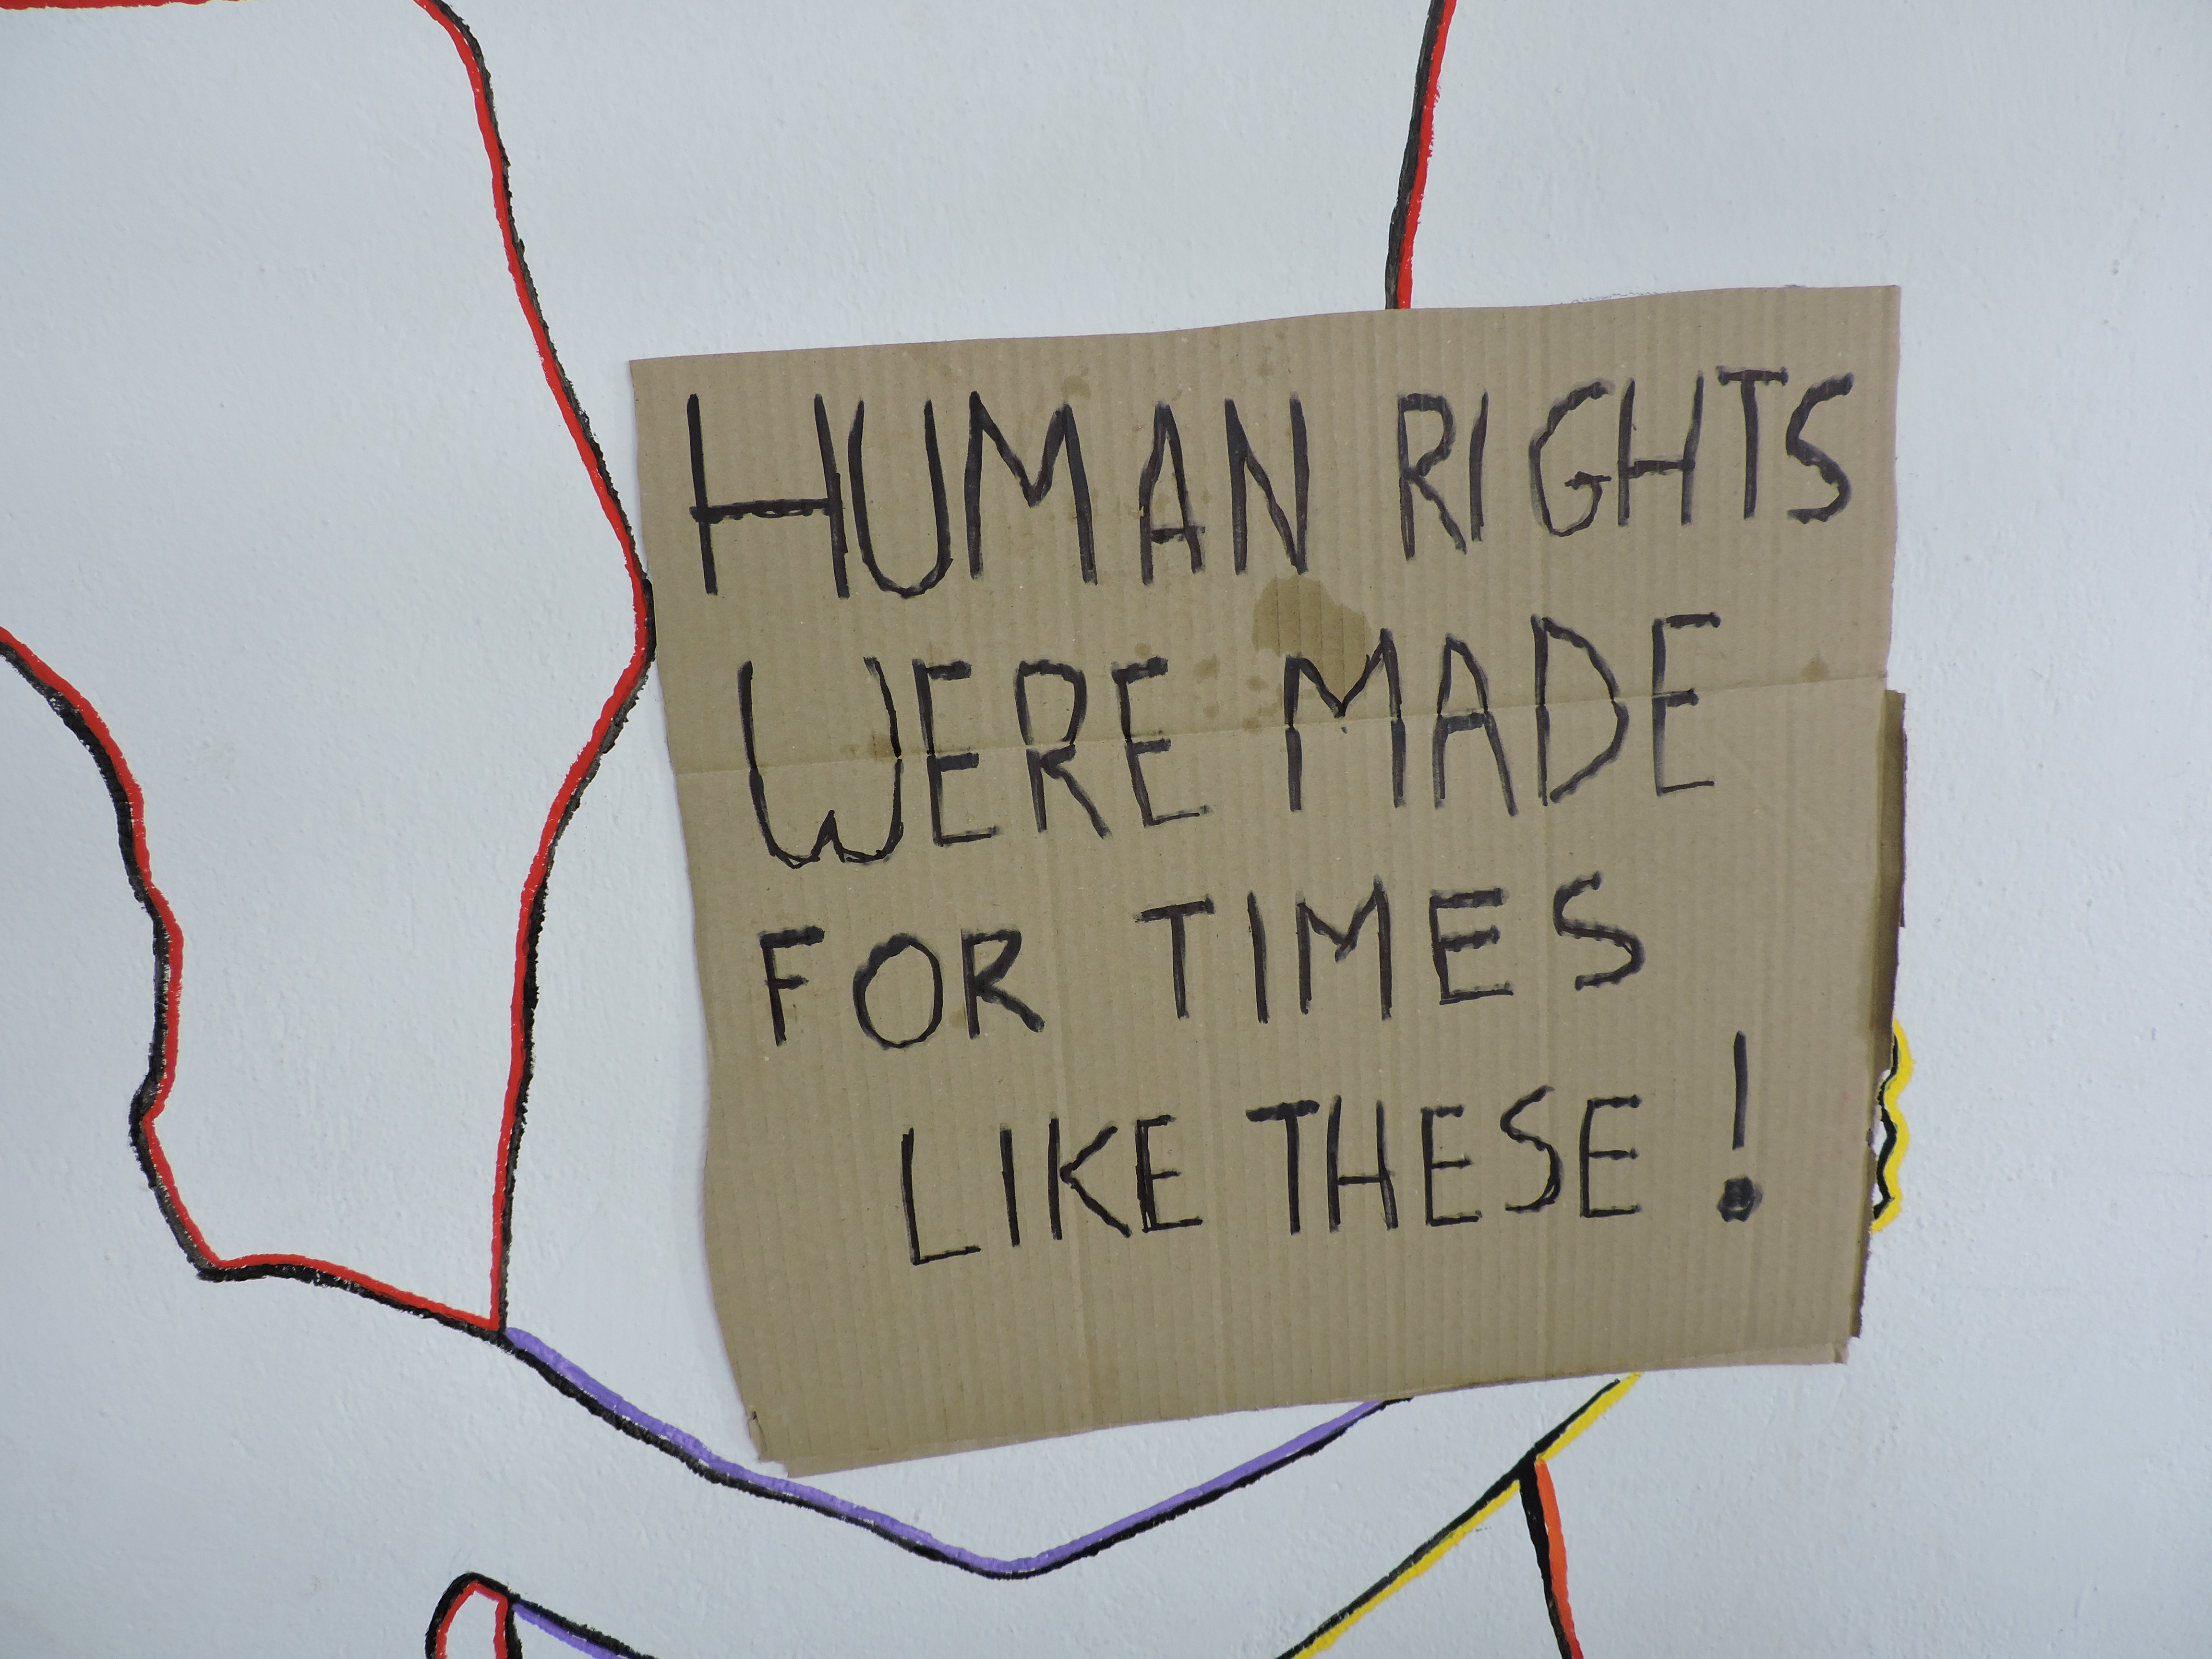 HUMAN RIGHTS
WERE MADE
FOR TIMES
LIKE THESE!